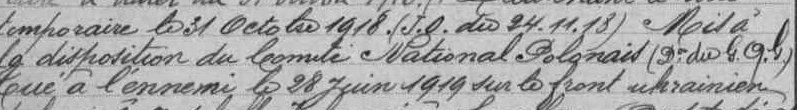 temporaire le 31 Octobre 1918. (J.O. du 24.11.18) Mis à
la disposition du Comité National Polonais (Don du G.Q.G)
tué à l'ennemi le 28 Juin 1919 sur le front ukrainien